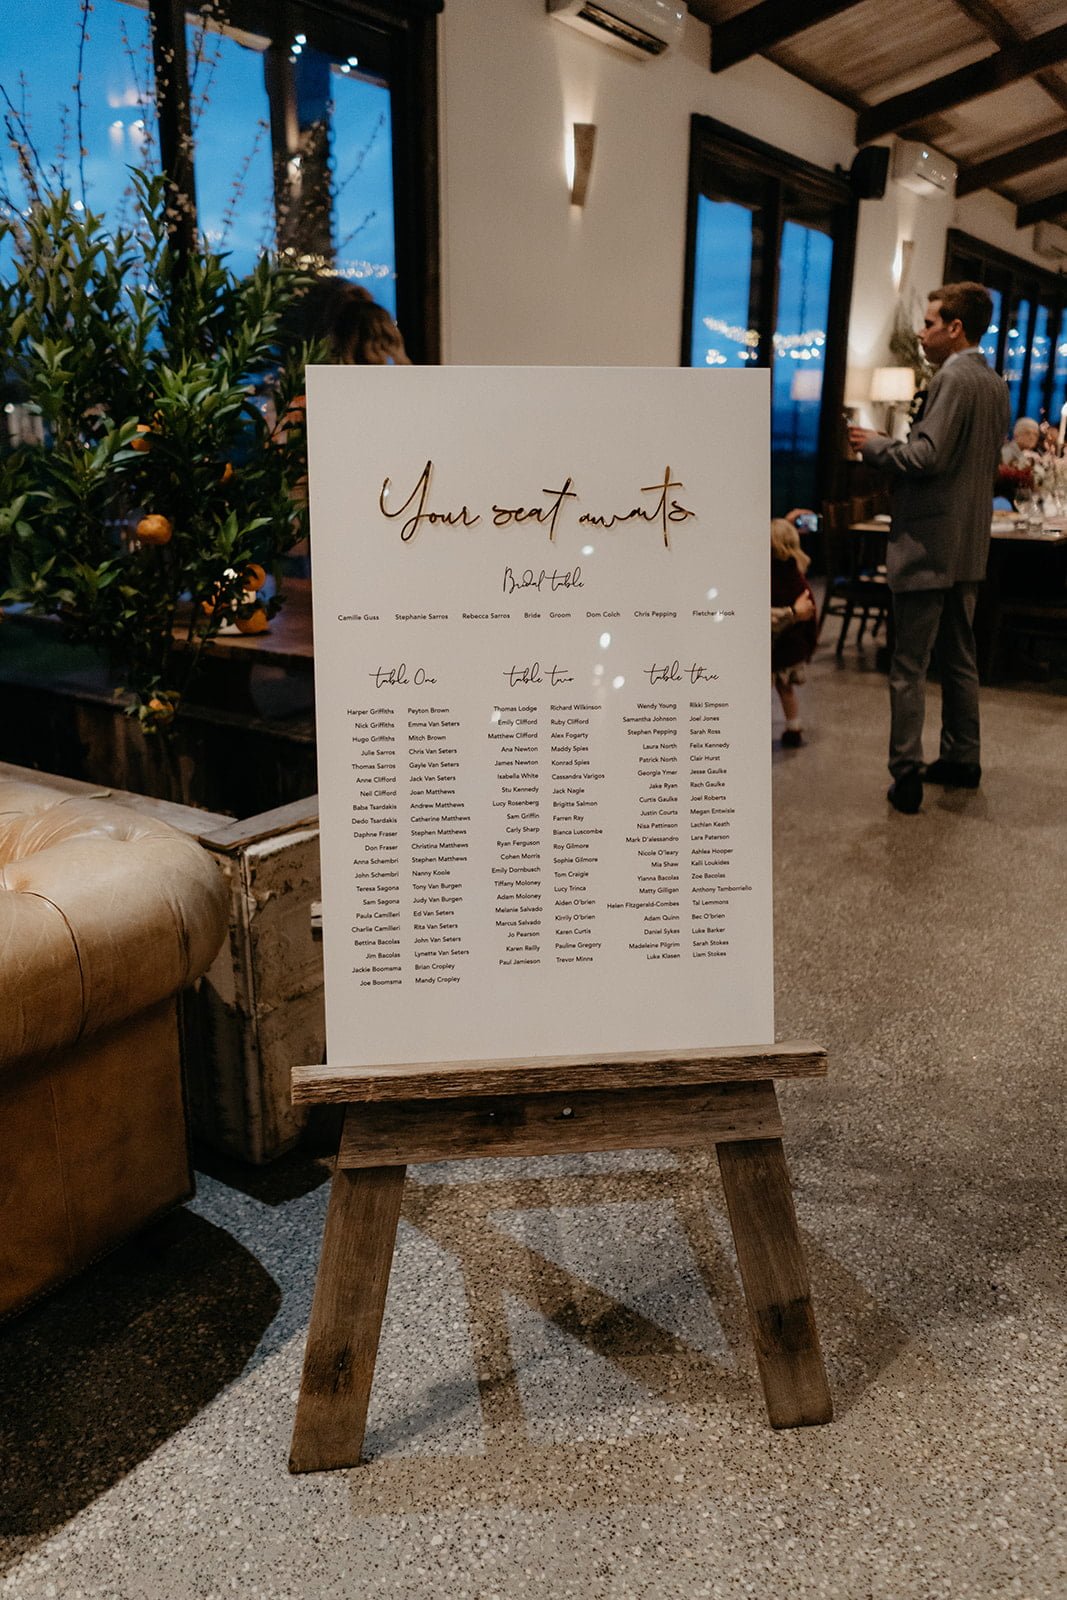 Your seat awaits
Bridal table
Camille Guss Stephanie Sarros Rebecca Sarros Bride Groom Dom Colch Chris Pepping Fletcher Hook
table One
Harper Griffiths Peyton Brown
Nick Griffiths Emma Van Seters
Hugo Griffiths Mitch Brown
Julie Sarros Chris Van Seters
Thomas Sarros Gayle Van Seters
Anne Clifford Jack Van Seters
Neil Clifford Joan Matthews
Baba Tsardakis Andrew Matthews
Dedo Tsardakis Catherine Matthews
Daphne Fraser Stephen Matthews
Don Fraser Christina Matthews
Anna Schembri Stephen Matthews
John Schembri Nanny Koole
Teresa Sagona Tony Van Burgen
Sam Sagona Judy Van Burgen
Paula Camilleri Ed Van Seters
Charlie Camilleri Rita Van Seters
Bettina Bacolas John Van Seters
Jim Bacolas Lynette Van Seters
Jackie Boomsma Brian Cropley
Joe Boomsma Mandy Cropley
table two
Thomas Lodge Richard Wilkinson
Emily Clifford Ruby Clifford
Matthew Clifford Alex Fogarty
Ana Newton Maddy Spies
James Newton Konrad Spies
Isabella White Cassandra Varigos
Stu Kennedy Jack Nagle
Lucy Rosenberg Brigitte Salmon
Sam Griffin Farren Ray
Carly Sharp Bianca Luscombe
Ryan Ferguson Roy Gilmore
Cohen Morris Sophie Gilmore
Emily Dornbusch Tom Craigie
Tiffany Moloney Lucy Trinca
Adam Moloney Aiden O'brien
Melanie Salvado Kirrily O'brien
Marcus Salvado Karen Curtis
Jo Pearson Pauline Gregory
Karen Reilly Trevor Minns
Paul Jamieson
table three
Wendy Young Rikki Simpson
Samantha Johnson Joel Jones
Stephen Pepping Sarah Ross
Laura North Felix Kennedy
Patrick North Clair Hurst
Georgia Ymer Jesse Gaulke
Jake Ryan Rach Gaulke
Curtis Gaulke Joel Roberts
Justin Courts Megan Entwisle
Nisa Pattinson Lachlan Keath
Mark D'alessandro Lara Paterson
Nicole O'leary Ashlea Hooper
Mia Shaw Kalli Loukides
Yianna Bacolas Zoë Bacolas
Matty Gilligan Anthony Tamborriello
Helen Fitzgerald-Combes Tal Lemmons
Adam Quinn Bec O'brien
Daniel Sykes Luke Barker
Madeleine Pilgrim Sarah Stokes
Luke Klasen Liam Stokes